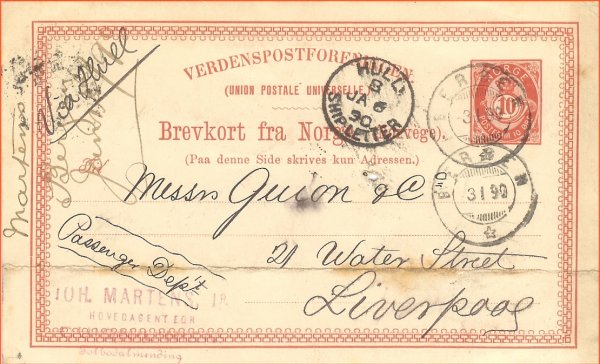 VERDENSPOSTFORENINGEN
(UNION POSTALE UNIVERSELLE)
Brevkort fra Norge (Norvège).
(Paa denne Side skrives kun Adressen.)
NORGE
10
HULL
B
JA 6
90
SHIP LETTER
BERGEN
3 I 90
BERGEN
3 I 90
Martens
Messrs Guion & C
Passenger Dep't
21 Water Street
Liverpool
JOH. MARTENS JR.
HOVEDAGENT FOR
Tolbodalmending